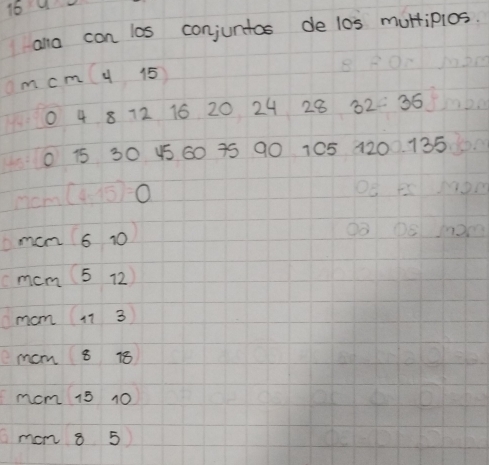 16
1 Halla con los conjuntos de los multiplos.
a mcm (4 15)
M4: {0 4 8 12 16 20 24 28 32 36}
M15: {0 15 30 45 60 75 90 105 120 135}
mcm (4,15) = 0
b mcm (6 10)
c mcm (5 12)
d mcm (11 3)
e mcm (8 18)
F mcm (15 10)
G mcm 8 5)